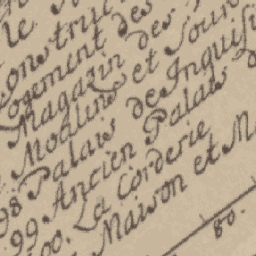 le
onstruc
ogement des
Magazin des
Moulins et Four
98 Palais de Inquisi
99 Ancien Palais d
00. La Corderie
Maison et M
80.